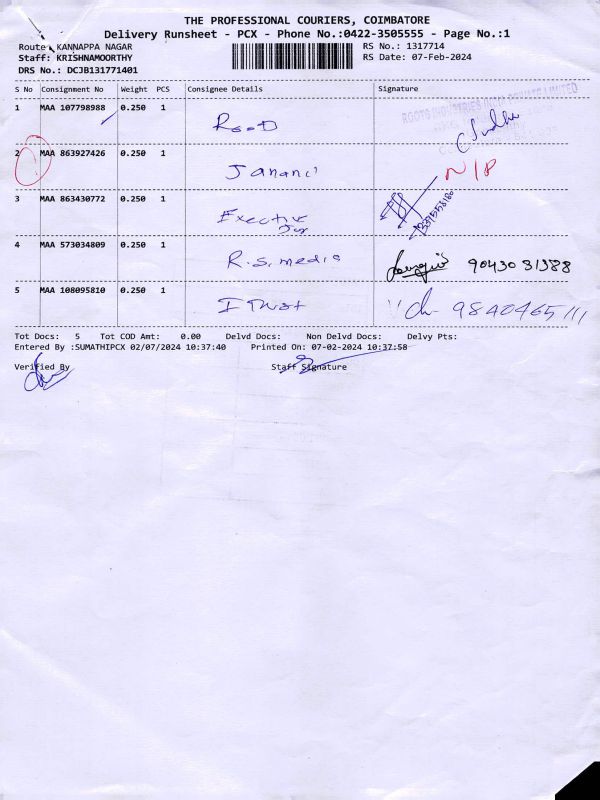 THE PROFESSIONAL COURIERS, COIMBATORE
Delivery Runsheet - PCX - Phone No.:0422-3505555 - Page No.:1
Route KANNAPPA NAGAR RS No.: 1317714
Staff: KRISHNAMOORTHY RS Date: 07-Feb-2024
DRS No.: DCJB131771401
S No Consignment No Weight PCS Consignee Details Signature
1 MAA 107798988 0.250 1
2 MAA 863927426 0.250 1 Janani
3 MAA 863430772 0.250 1 Executive
4 MAA 573034809 0.250 1 R.S. media 9043031388
5 MAA 108095810 0.250 1 I Trust
Tot Docs: 5 Tot COD Amt: 0.00 Delvd Docs: Non Delvd Docs: Delvy Pts:
Entered By :SUMATHIPCX 02/07/2024 10:37:40 Printed On: 07-02-2024 10:37:58
Verified By Staff Signature